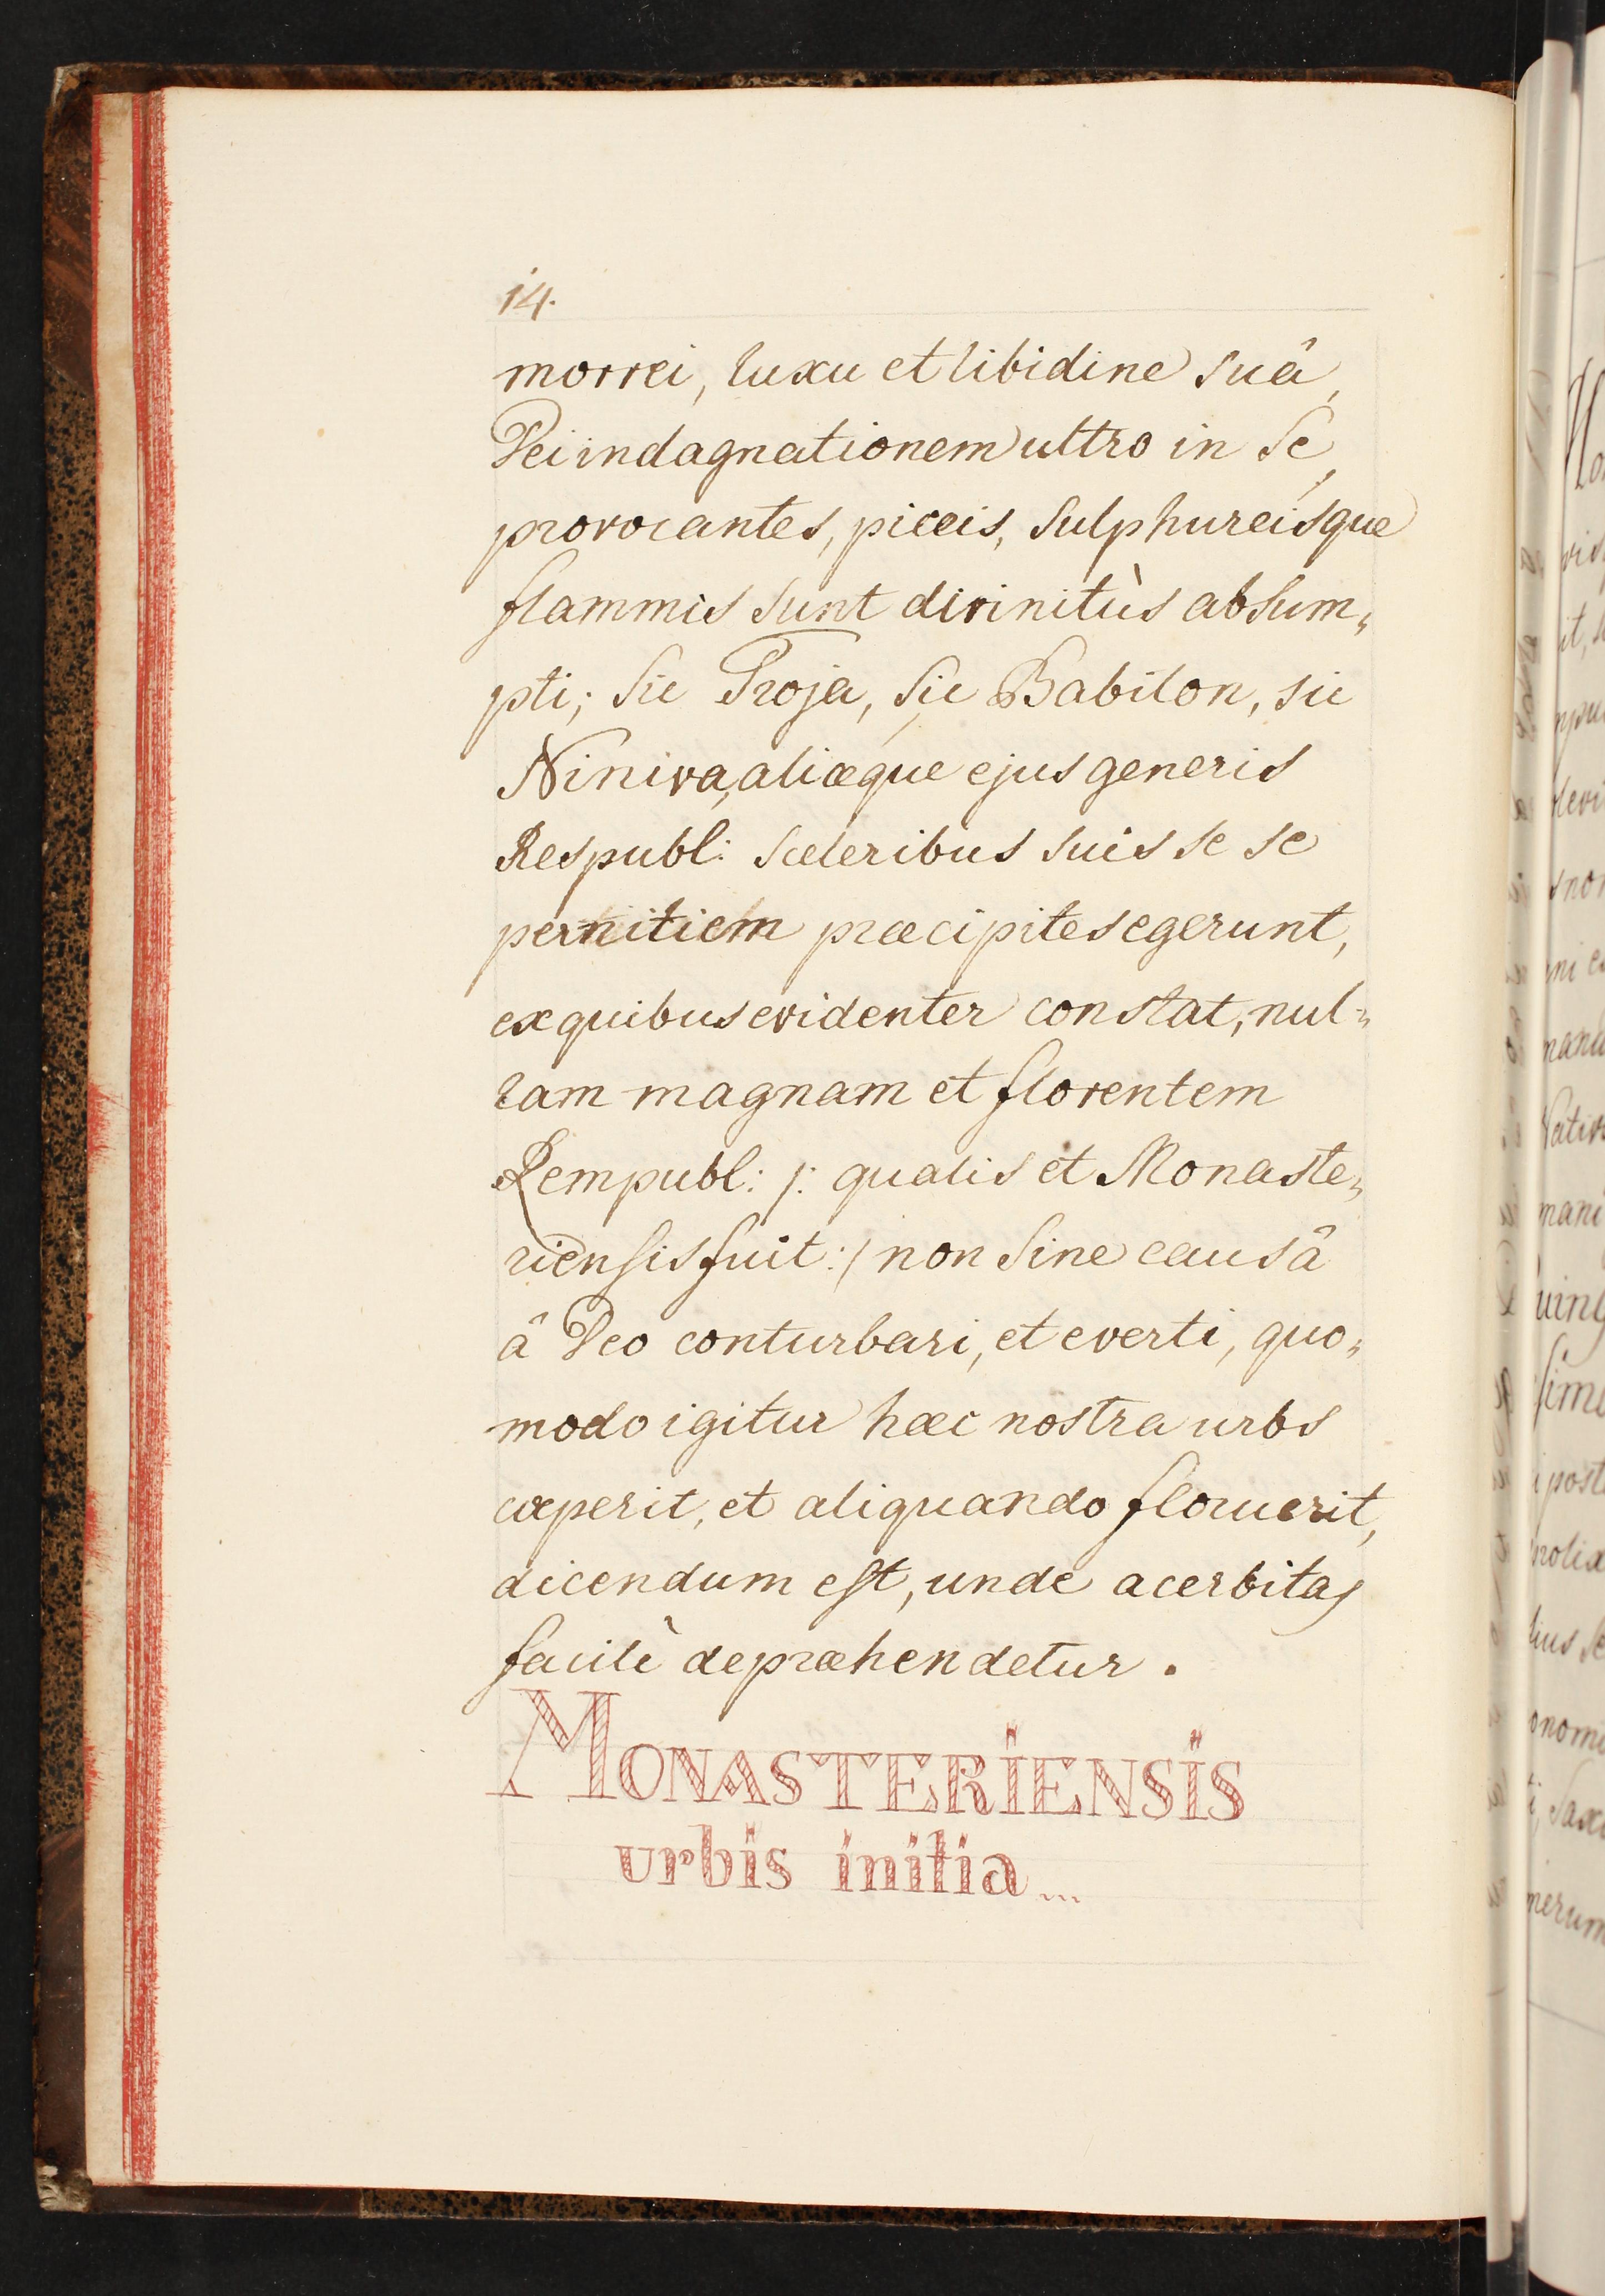 14.
morrei, luxu et libidine suâ,
Dei indagnationem ultro in se,
provocantes, piceis, sulphureisque
flammis sunt divinitùs absum„
pti; sic Troja, sic Babilon, sic
Niniva, aliæque ejus generis
Respubl: sceleribus suis se se
pernitiem præcipites egerunt,
ex quibus evidenter constat, nul„
lam magnam et florentem
Rempubl: /: qualis et Monaste„
riensis fuit :/ non sine causâ
â Deo conturbari, et everti, quo„
modo igitur hæc nostra urbs
cæperit, et aliquando floruerit,
dicendum est, unde acerbitas
facilè depræhendetur.
MONASTERIENSIS
urbis initia...